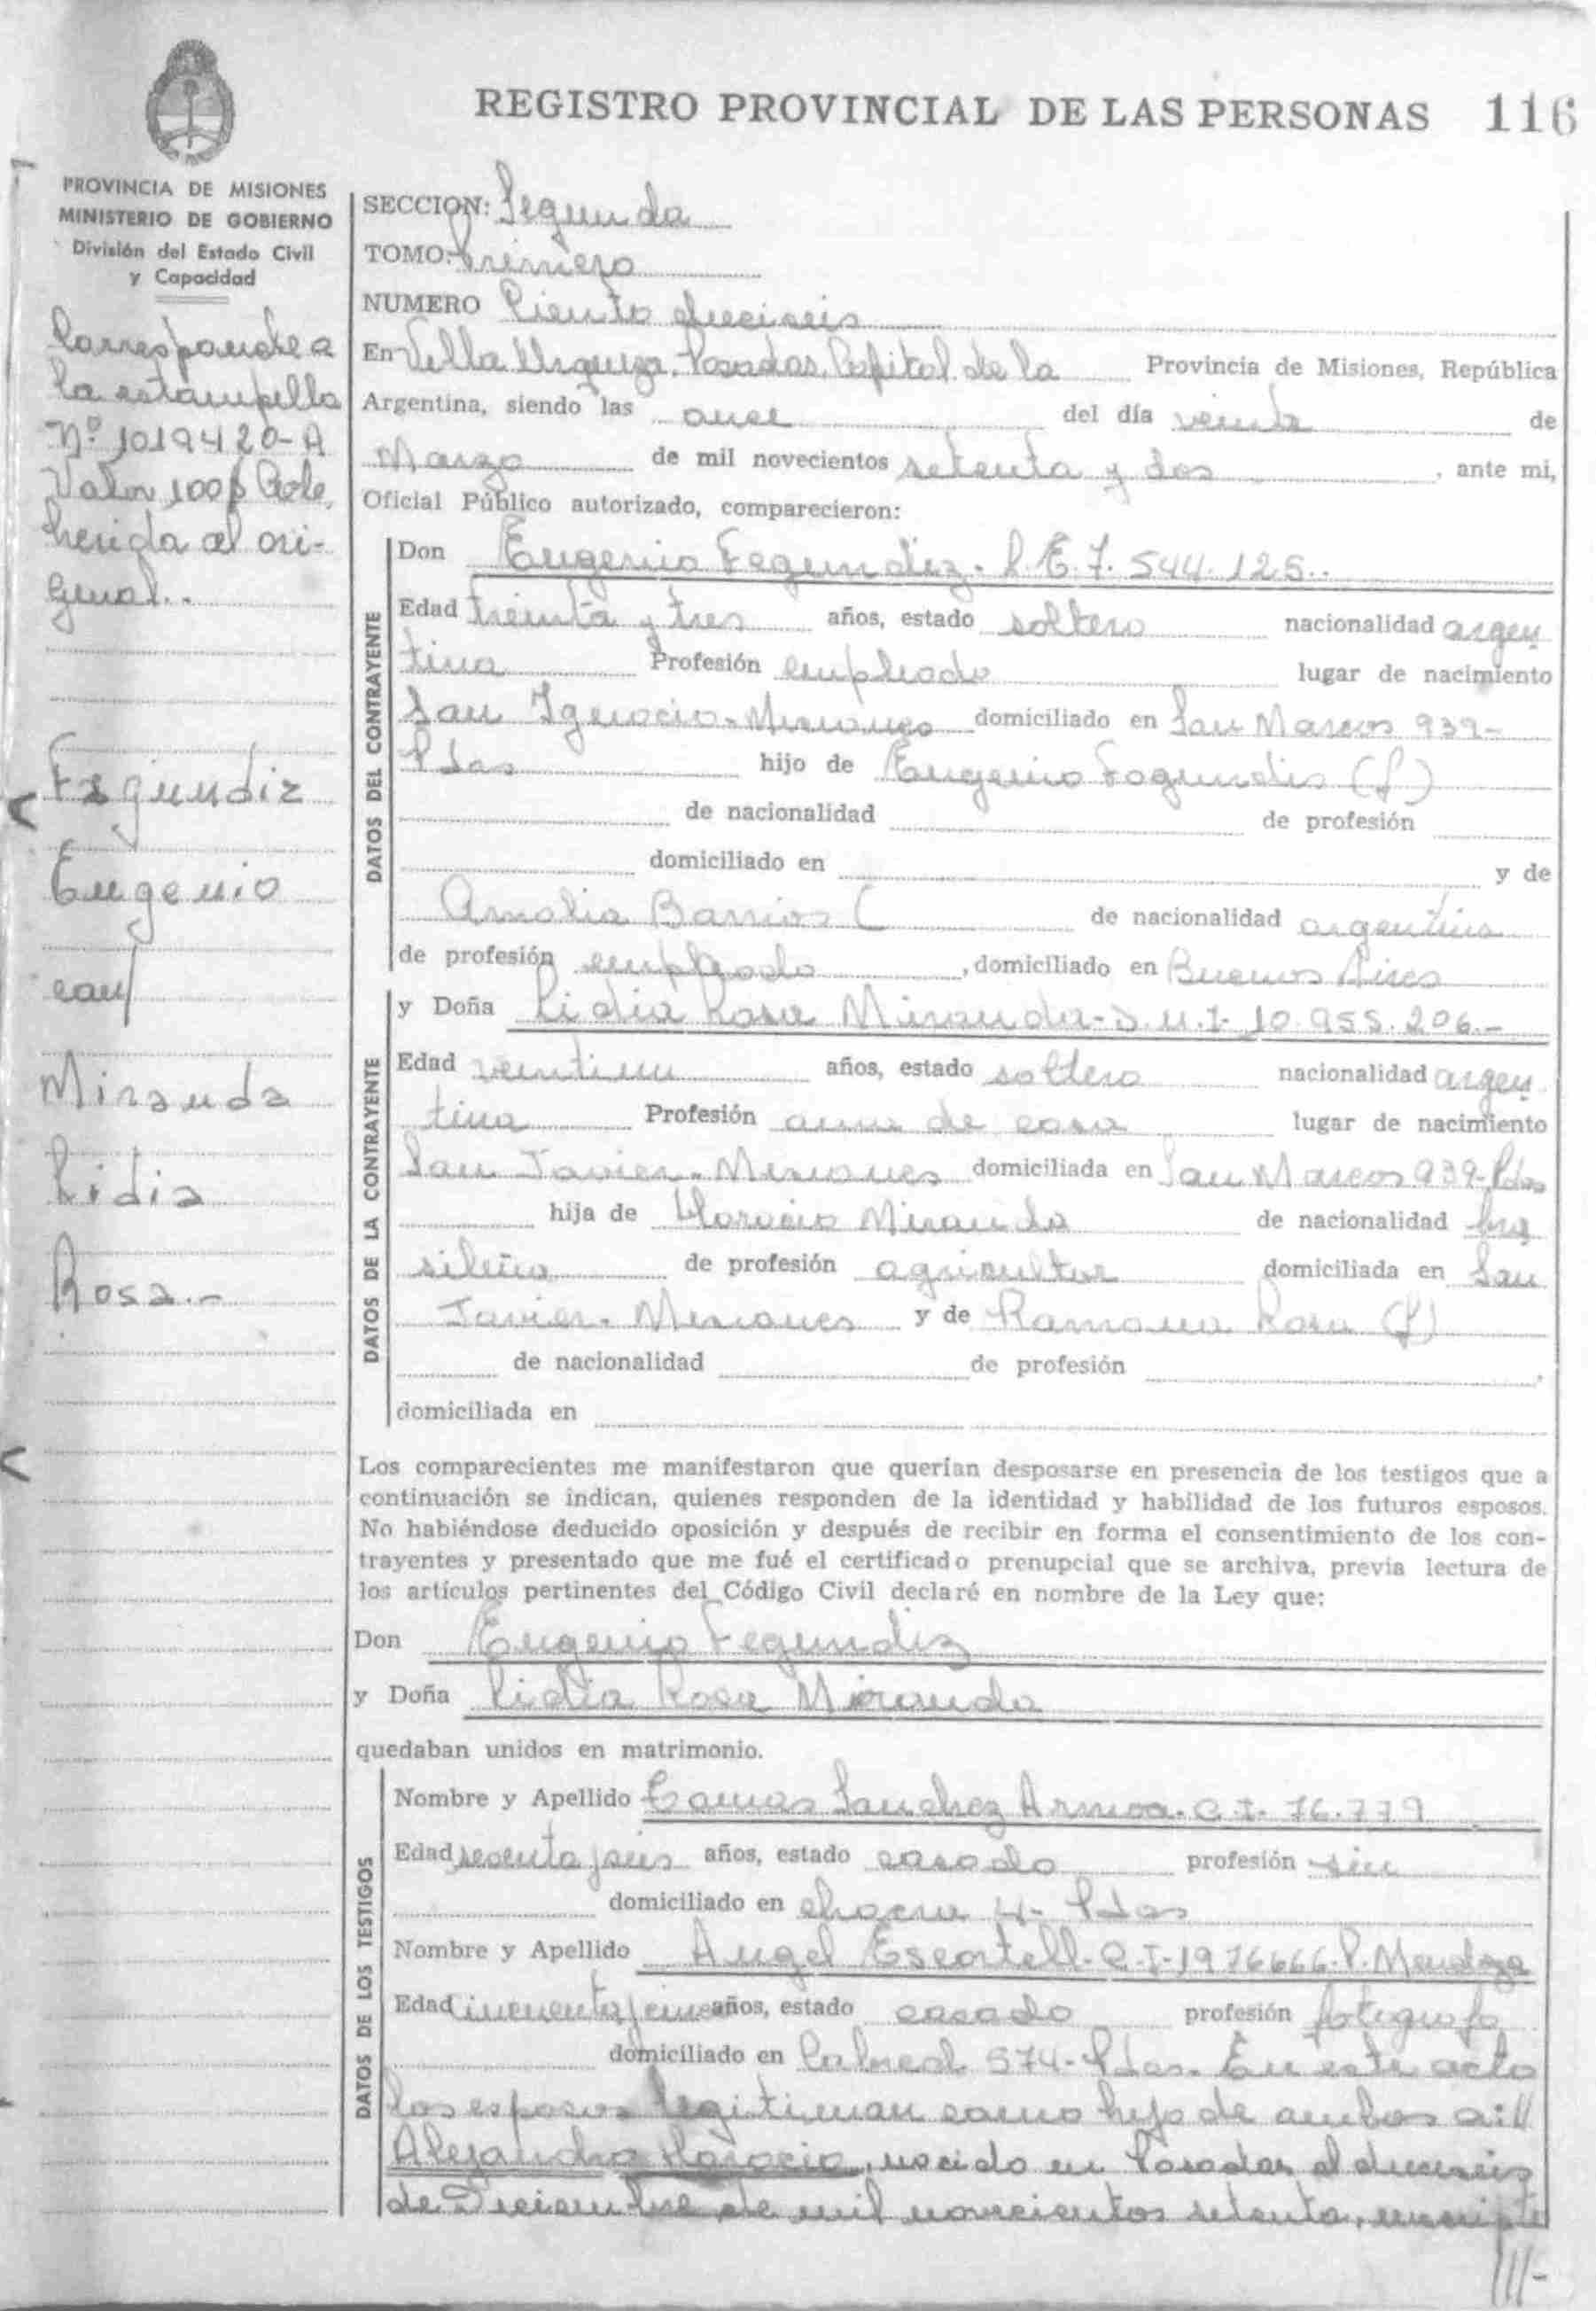 REGISTRO PROVINCIAL DE LAS PERSONAS 116
PROVINCIA DE MISIONES
MINISTERIO DE GOBIERNO
División del Estado Civil
y Capacidad
Corresponde a
la estampilla
Nº 1019420-A
Valor 100$ Adhe
herida al ori-
ginal.-
Fegundiz
Eugenio
con/
Miranda
Lidia
Rosa.-
SECCION: Segunda
TOMO: primero
NUMERO Ciento dieciseis
En Villa Urquiza, Posadas, Capital de la Provincia de Misiones, República
Argentina, siendo las once del día veinte de
Marzo de mil novecientos setenta y dos, ante mi,
Oficial Público autorizado, comparecieron:
DATOS DEL CONTRAYENTE
Don Eugenio Fegundiz. L.E. 7.544.125.-
Edad treinta y tres años, estado soltero nacionalidad argen
tina Profesión empleado lugar de nacimiento
San Ignacio-Misiones domiciliado en San Marcos 939-
Pdas hijo de Eugenio Fogundis (f)
de nacionalidad de profesión
domiciliado en y de
Amalia Barrios de nacionalidad argentina
de profesión empleada, domiciliado en Buenos Aires
DATOS DE LA CONTRAYENTE
y Doña Lidia Rosa Miranda-D.N.I. 10.955.206.-
Edad veintiun años, estado soltera nacionalidad argen
tina Profesión ama de casa lugar de nacimiento
San Javier-Misiones domiciliada en San Marcos 939-Pdas
hija de Horacio Miranda de nacionalidad bra
sileño de profesión agricultor domiciliada en San
Javier-Misiones y de Ramona Rosa (f)
de nacionalidad de profesión
domiciliada en
Los comparecientes me manifestaron que querían desposarse en presencia de los testigos que a
continuación se indican, quienes responden de la identidad y habilidad de los futuros esposos.
No habiéndose deducido oposición y después de recibir en forma el consentimiento de los con-
trayentes y presentado que me fué el certificado prenupcial que se archiva, previa lectura de
los artículos pertinentes del Código Civil declaré en nombre de la Ley que:
Don Eugenio Fegundiz
y Doña Lidia Rosa Miranda
quedaban unidos en matrimonio.
DATOS DE LOS TESTIGOS
Nombre y Apellido Sanchez Armoa. C.I. 76.779
Edad sesenta y seis años, estado casado profesión sin
domiciliado en chacra 4- Pdas
Nombre y Apellido Angel Escortell-C.I-1976666-P. Mendoza
Edad cincuenta y cinco años, estado casado profesión fotógrafo
domiciliado en Cabred 574-Pdas-En este acto
los esposos legitiman como hijo de ambos a://
Alejandro Horacio, nacido en Posadas el dieciseis
de Diciembre de mil novecientos setenta, inscripto
///-